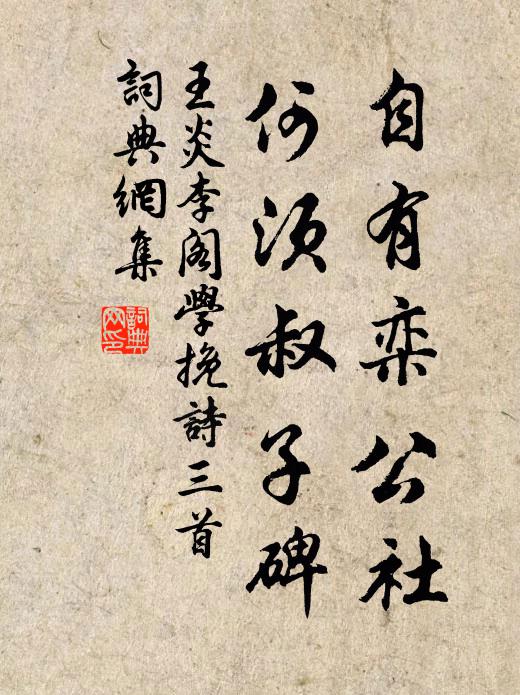 自有栾公社
何须叔子碑
王炎李阁學挽詩三首
詞典網集
詞典網印